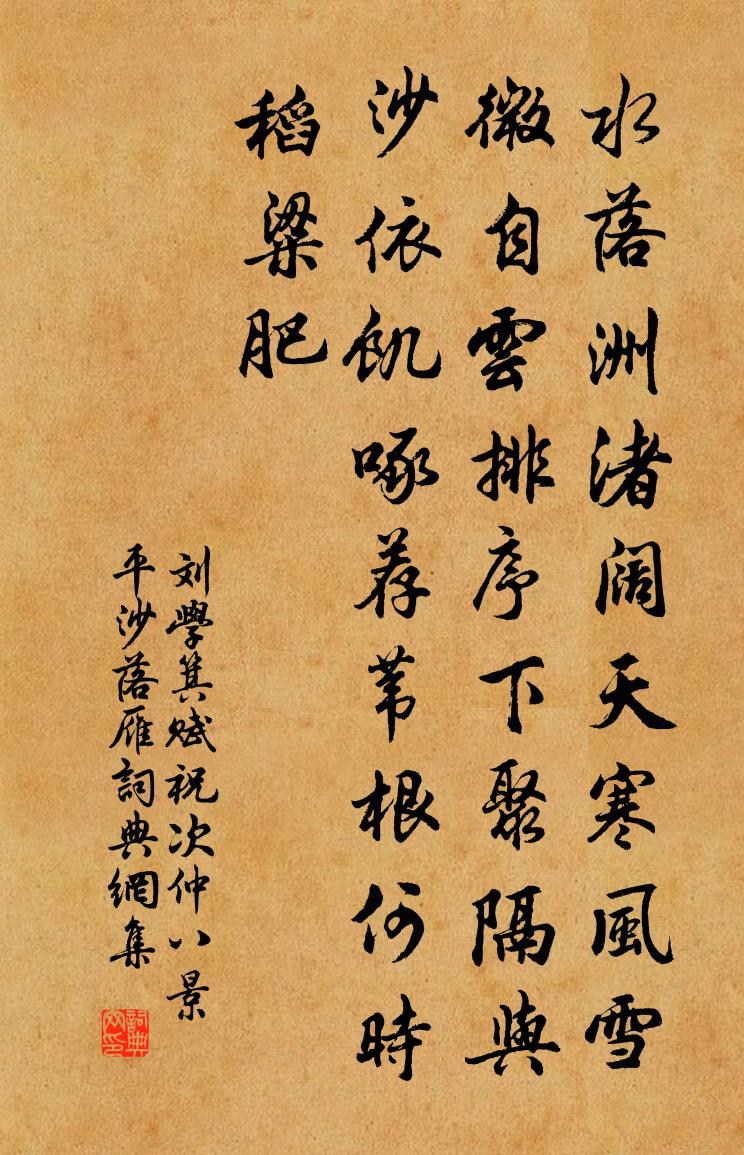 水落洲渚阔天寒風雪
微自雲排序下聚隔與
沙依飢啄荐苇根何時
稻粱肥
刘學箕赋祝次仲八景
平沙落雁詞典網集
詞典网印